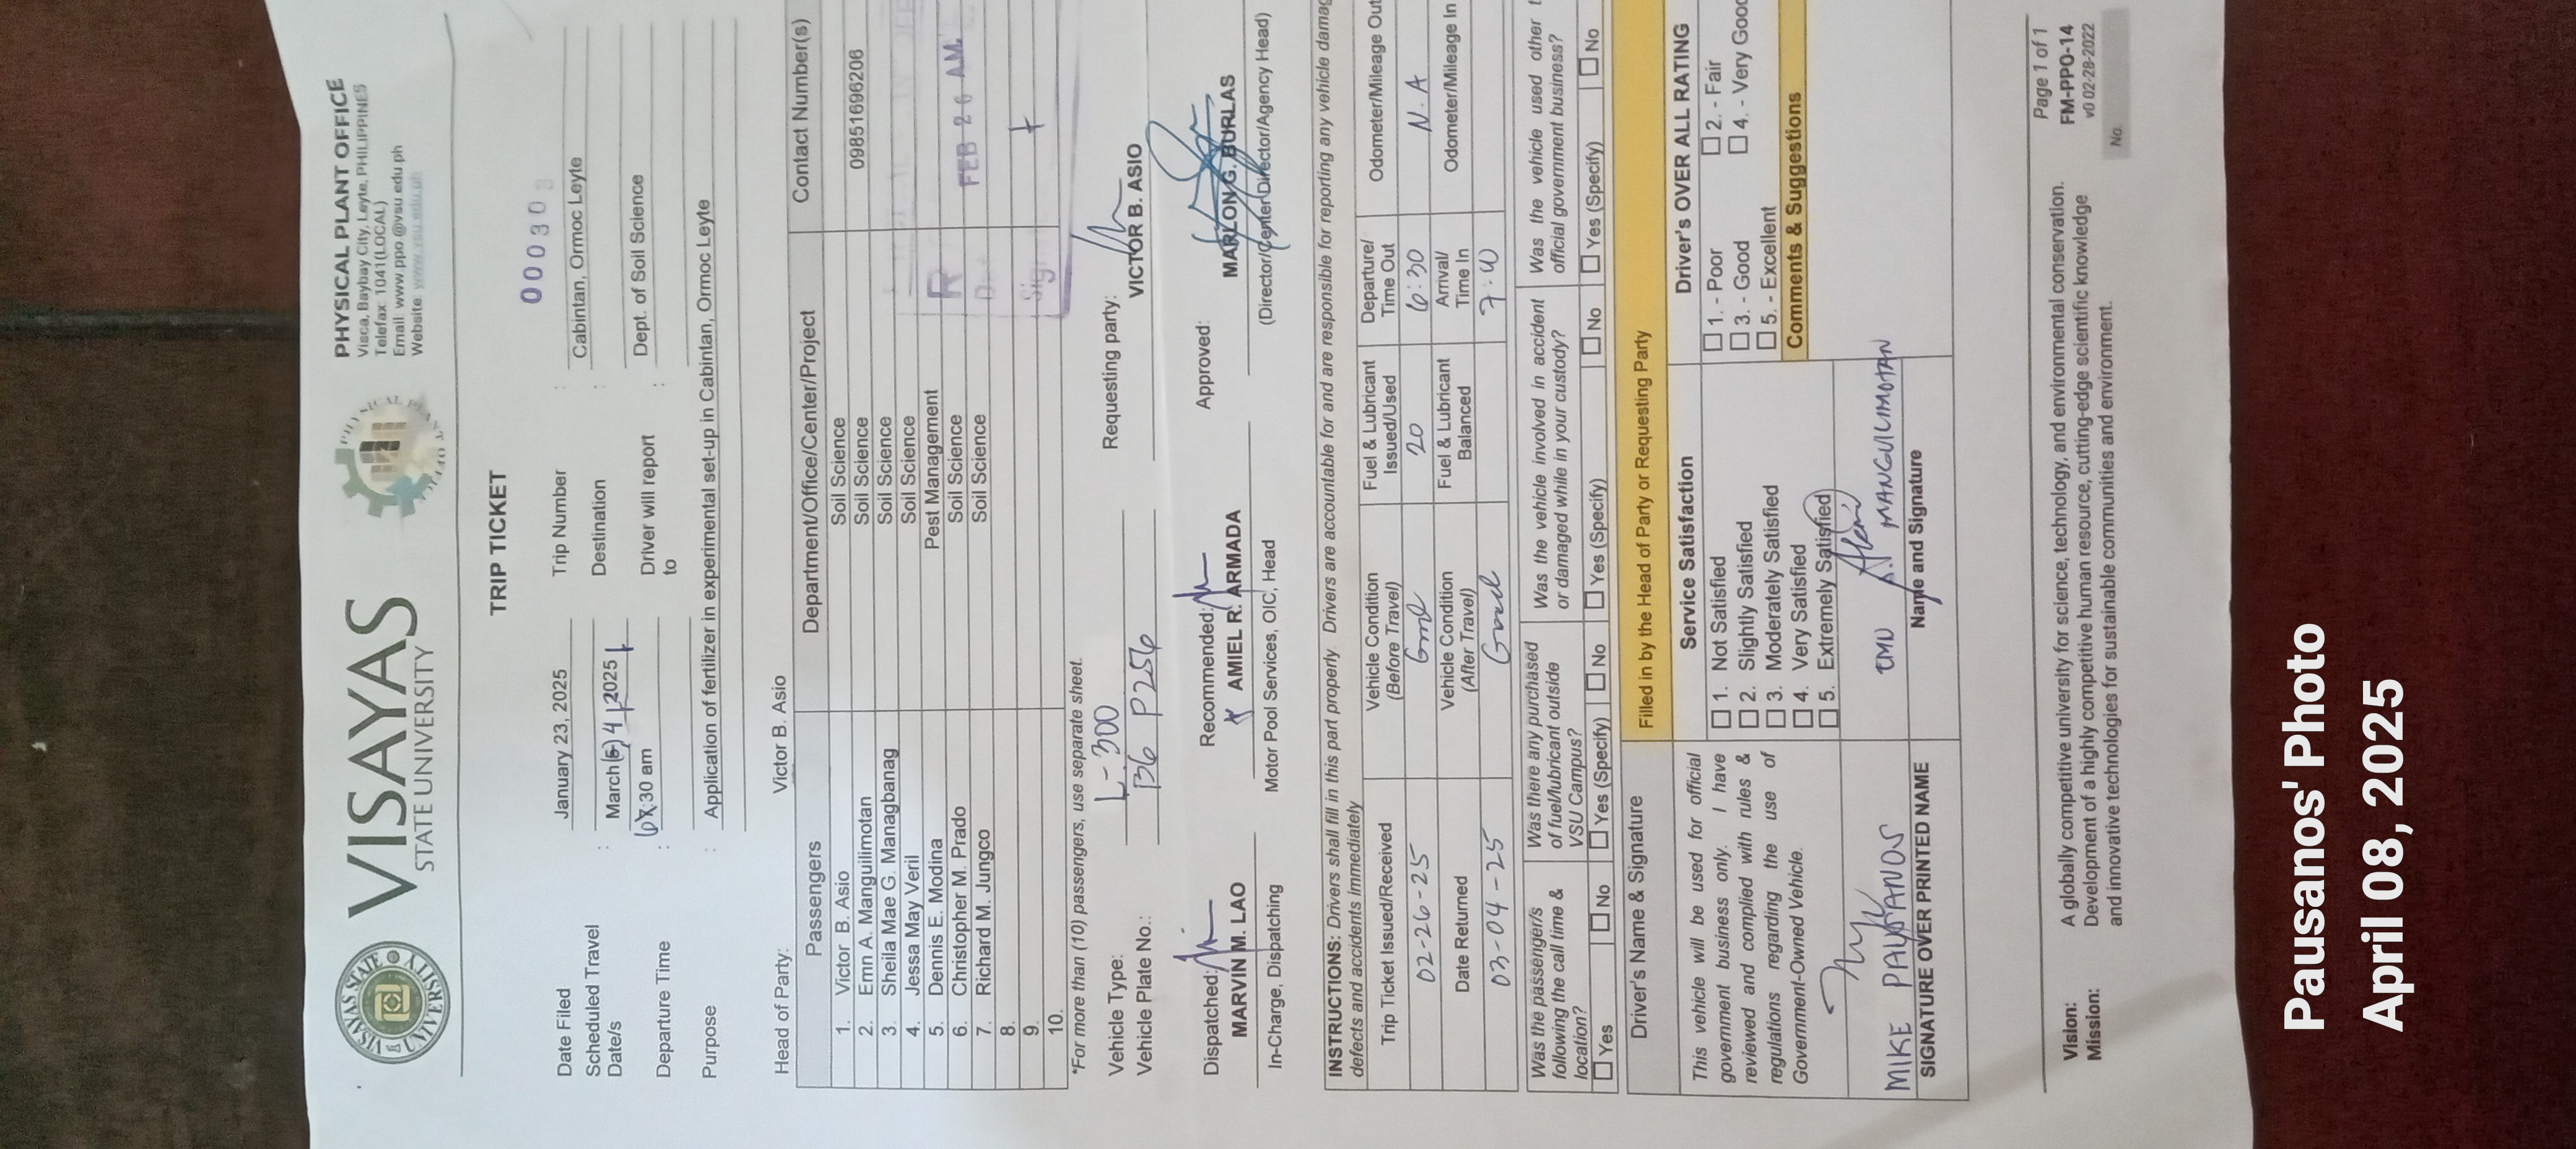 VISAYAS
STATE UNIVERSITY
PHYSICAL PLANT OFFICE
Visca, Baybay City, Leyte, PHILIPPINES
Telefax: 1041(LOCAL)
Email: www.ppo.@vsu.edu.ph
Website: www.vsu.edu.ph
TRIP TICKET
00030
Date Filed January 23, 2025 Trip Number :
Scheduled Travel Date/s : March (5) 4, 2025 Destination : Cabintan, Ormoc Leyte
Departure Time : 6:30 am Driver will report to : Dept. of Soil Science
Purpose : Application of fertilizer in experimental set-up in Cabintan, Ormoc Leyte
Head of Party: Victor B. Asio
Passengers Department/Office/Center/Project Contact Number(s)
1. Victor B. Asio Soil Science
2. Emn A. Manguilimotan Soil Science 09851696206
3. Sheila Mae G. Managbanag Soil Science
4. Jessa May Veril Soil Science
5. Dennis E. Modina Pest Management
6. Christopher M. Prado Soil Science FEB 26 AM
7. Richard M. Jungco Soil Science
8.
9.
10.
*For more than (10) passengers, use separate sheet.
Vehicle Type: L-300 Requesting party:
Vehicle Plate No.: P256 VICTOR B. ASIO
Dispatched: Recommended: Approved:
MARVIN M. LAO AMIEL R. ARMADA MARLON G. BURLAS
In-Charge, Dispatching Motor Pool Services, OIC, Head (Director/Center Director/Agency Head)
INSTRUCTIONS: Drivers shall fill in this part properly. Drivers are accountable for and are responsible for reporting any vehicle
defects and accidents immediately
Trip Ticket Issued/Received Vehicle Condition (Before Travel) Fuel & Lubricant Issued/Used Departure/ Time Out Odometer/Mileage Out
02-26-25 Good 20 6:30 N.A
Date Returned Vehicle Condition (After Travel) Fuel & Lubricant Balanced Arrival/ Time In Odometer/Mileage In
03-04-25 Good
Was the passenger/s following the call time & location? Was there any purchased of fuel/lubricant outside VSU Campus? Was the vehicle involved in accident or damaged while in your custody? Was the vehicle used other official government business?
Yes No Yes (Specify) No Yes (Specify) No Yes (Specify) No
Driver's Name & Signature Filled in by the Head of Party or Requesting Party
This vehicle will be used for official
government business only. I have
reviewed and complied with rules &
regulations regarding the use of
Government-Owned Vehicle.
MIKE PAUSANOS
SIGNATURE OVER PRINTED NAME
Service Satisfaction
1. Not Satisfied
2. Slightly Satisfied
3. Moderately Satisfied
4. Very Satisfied
5. Extremely Satisfied
EMN A. MANGUILIMOTAN
Name and Signature
Driver's OVER ALL RATING
1. - Poor 2. - Fair
3. - Good 4. - Very Good
5. - Excellent
Comments & Suggestions
Vision: A globally competitive university for science, technology, and environmental conservation.
Mission: Development of a highly competitive human resource, cutting-edge scientific knowledge
and innovative technologies for sustainable communities and environment.
Page 1 of 1
FM-PPO-14
v0 02-28-2022
No.
Pausanos' Photo
April 08, 2025